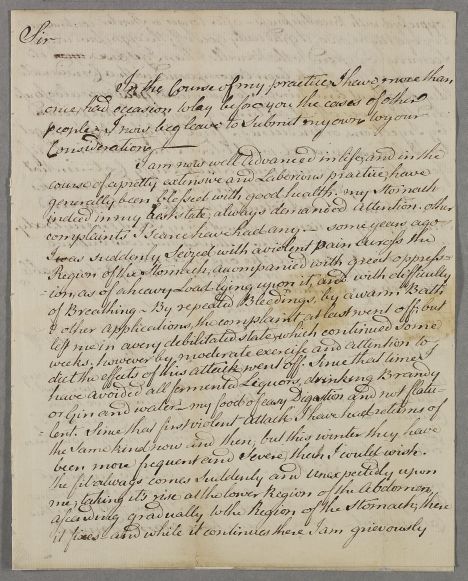 Sir
In the Course of my practice, I have, more than
once, had occasion to lay before you the cases of other
people, I now beg leave to Submit my own to your
Consideration,
I am now well advanced in life, and in the
course of a pretty extensive and Laborious practice, have
generally been blessed with good health. my Stomach
indeed in my best State, always demanded attention. other
complaints I scarce have had any. — some years ago
I was Suddenly Seized with a violent pain across the
Region of the Stomach, accompanied with great oppress-
-ion as of a heavy Load lying upon it, and with difficulty
of Breathing — By repeated Bleedings, by a warm Bath
& other applications, the complaint at last went off; but
left me in a very debilitated state, which continued some
weeks. however by moderate exercise and attention to
diet the effects of this attack went off. Since that time I
have avoided all fermented Liquors, drinking Brandy
or Gin and water — my food of easy Digestion and not flatu-
-lent. Since that first violent attack I have had returns of
the Same kind now and then; but this winter they have
been more frequent and Severe than I could wish.
The fit always comes Suddenly and unexpectedly upon
me, taking its rise at the lower Region of the Abdomen,
ascending gradually to the Region of the Stomach, there
it fixes and while it continues there I am grievously